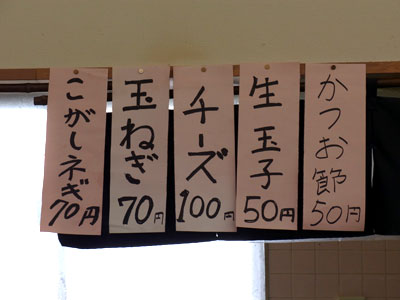 かつお節
50円
生玉子
50円
チーズ
100円
玉ねぎ
70円
こがしネギ
70円